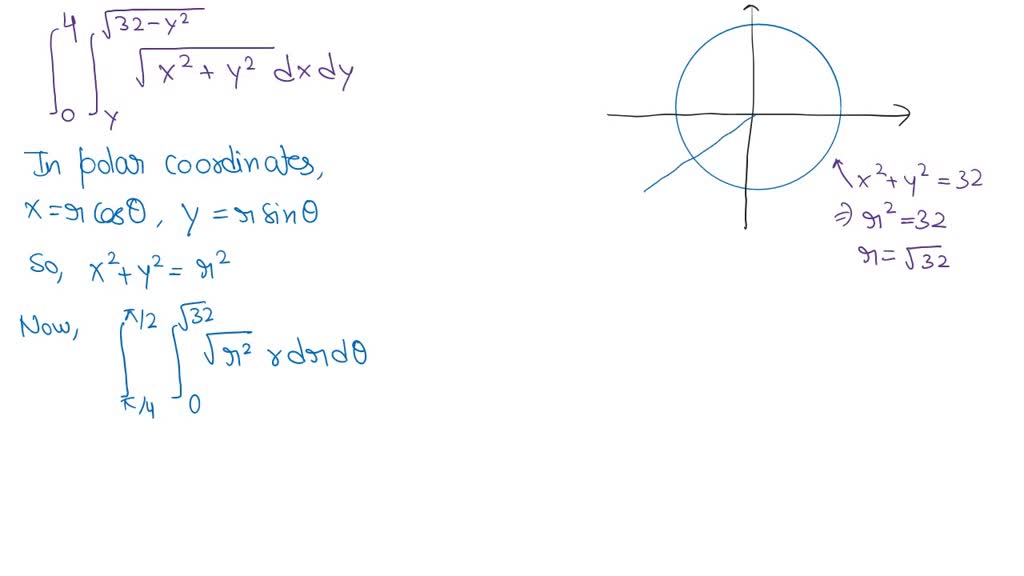 ∫₀⁴ ∫_y^√(32-y²) √(x²+y²) dx dy
In polar coordinates,
x = r cosθ, y = r sinθ
So, x²+y² = r²
Now, ∫_π/4^π/2 ∫₀^√32 √r² r dr dθ
x²+y² = 32
⇒ r² = 32
r = √32